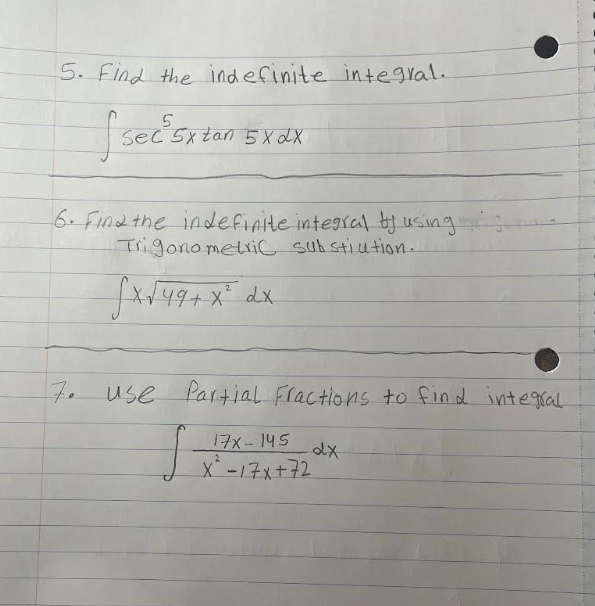 5. Find the indefinite integral.
∫ sec⁵ 5x tan 5x dx
6. Find the indefinite integral by using
Trigonometric substiution.
∫ x√49+ x² dx
7. use Partial Fractions to find integral
∫ 17x - 145 / x² - 17x + 72 dx